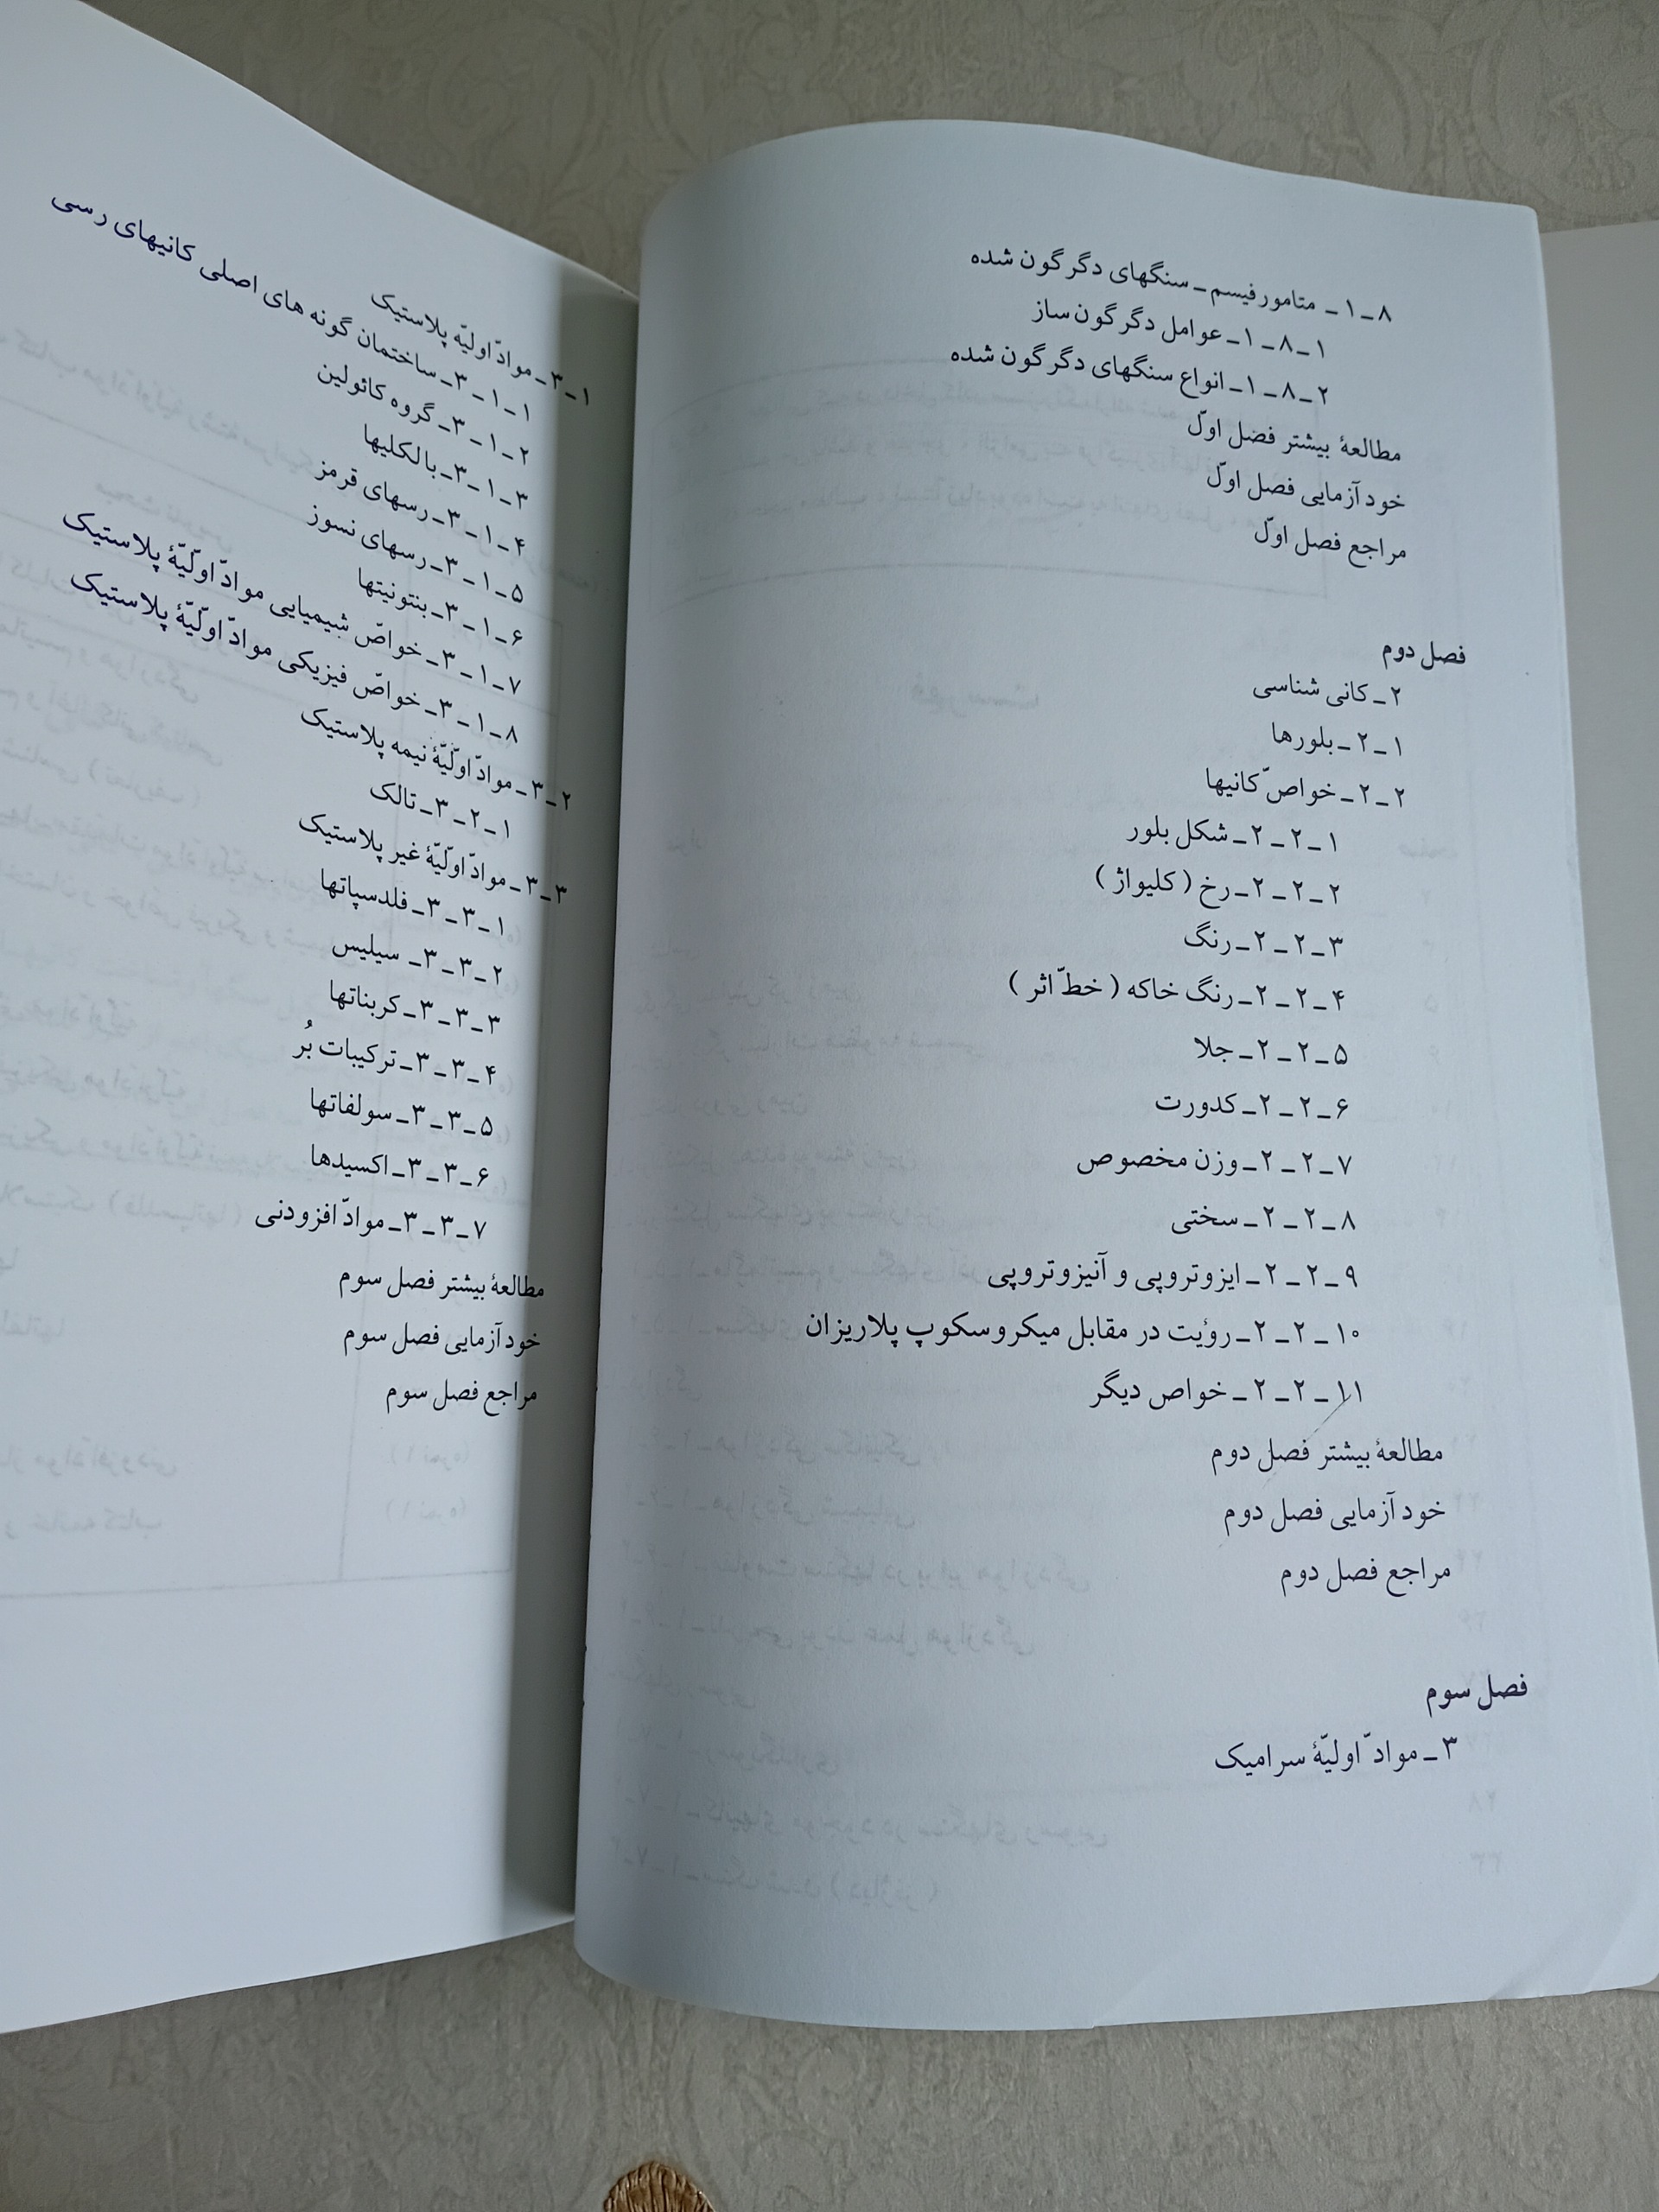 ۸ـ۱ـ متامورفیسم ـ سنگهای دگرگون شده
۱ـ۸ـ۱ـ عوامل دگرگون ساز
۲ـ۸ـ۱ـ انواع سنگهای دگرگون شده
مطالعۀ بیشتر فضل اوّل
خود آزمایی فصل اوّل
مراجع فصل اوّل
فصل دوم
۲ـ کانی شناسی
۱ـ۲ـ بلورها
۲ـ۲ـ خواصّ کانیها
۱ـ۲ـ۲ـ شکل بلور
۲ـ۲ـ۲ـ رخ ( کلیواژ )
۳ـ۲ـ۲ـ رنگ
۴ـ۲ـ۲ـ رنگ خاکه ( خطّ اثر )
۵ـ۲ـ۲ـ جلا
۶ـ۲ـ۲ـ کدورت
۷ـ۲ـ۲ـ وزن مخصوص
۸ـ۲ـ۲ـ سختی
۹ـ۲ـ۲ـ ایزوتروپی و آنیزوتروپی
۱۰ـ۲ـ۲ـ رؤیت در مقابل میکروسکوپ پلاریزان
۱۱ـ۲ـ۲ـ خواص دیگر
مطالعۀ بیشتر فصل دوم
خود آزمایی فصل دوم
مراجع فصل دوم
فصل سوم
۳ـ موادّ اولیّۀ سرامیک
۱ـ۳ـ موادّ اولیّه پلاستیک
۱ـ۱ـ۳ـ ساختمان گونه های اصلی کانیهای رسی
۲ـ۱ـ۳ـ گروه کائولین
۳ـ۱ـ۳ـ بالکلیها
۴ـ۱ـ۳ـ رسهای قرمز
۵ـ۱ـ۳ـ رسهای نسوز
۶ـ۱ـ۳ـ بنتونیتها
۷ـ۱ـ۳ـ خواصّ شیمیایی موادّ اوّلیّۀ پلاستیک
۸ـ۱ـ۳ـ خواصّ فیزیکی موادّ اوّلیّۀ پلاستیک
۲ـ۳ـ موادّ اوّلیّۀ نیمه پلاستیک
۱ـ۲ـ۳ـ تالک
۳ـ۳ـ موادّ اوّلیّۀ غیر پلاستیک
۱ـ۳ـ۳ـ فلدسپاتها
۲ـ۳ـ۳ـ سیلیس
۳ـ۳ـ۳ـ کربناتها
۴ـ۳ـ۳ـ ترکیبات بُر
۵ـ۳ـ۳ـ سولفاتها
۶ـ۳ـ۳ـ اکسیدها
۷ـ۳ـ۳ـ موادّ افزودنی
مطالعۀ بیشتر فصل سوم
خود آزمایی فصل سوم
مراجع فصل سوم